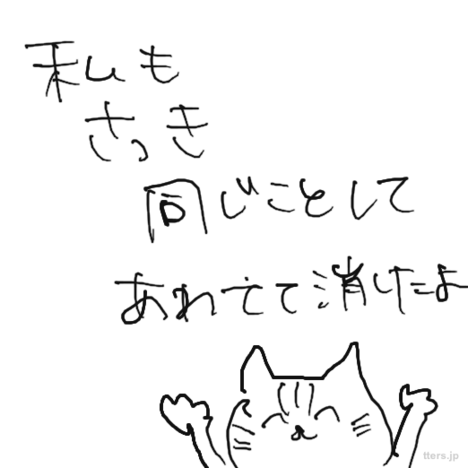 私も
さっき
同じことして
あわてて消けたよ
tters.jp